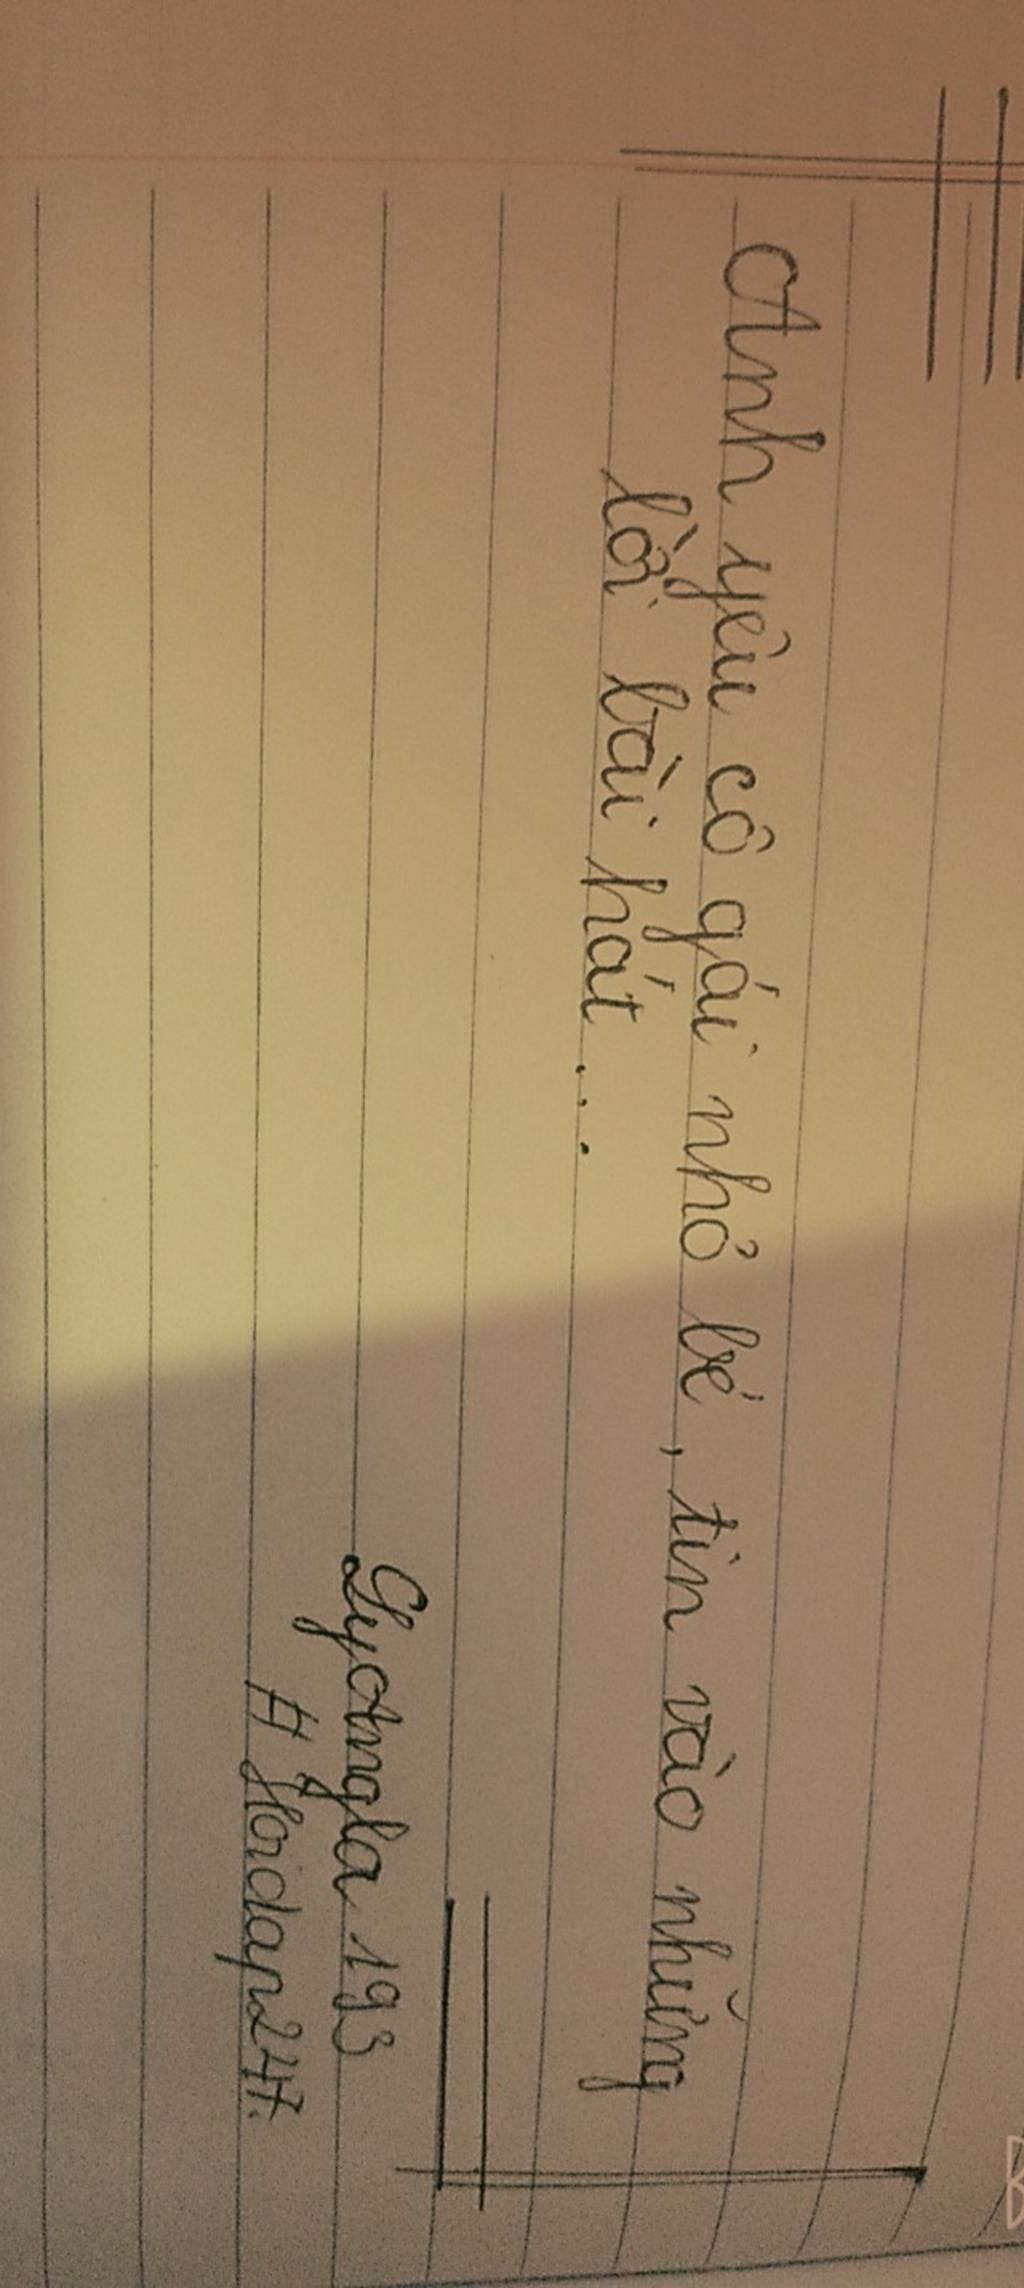 Anh yêu cô gái nhỏ bé, tin vào những
lời bài hát...
LyAngla 193
# Hoidap247.
B